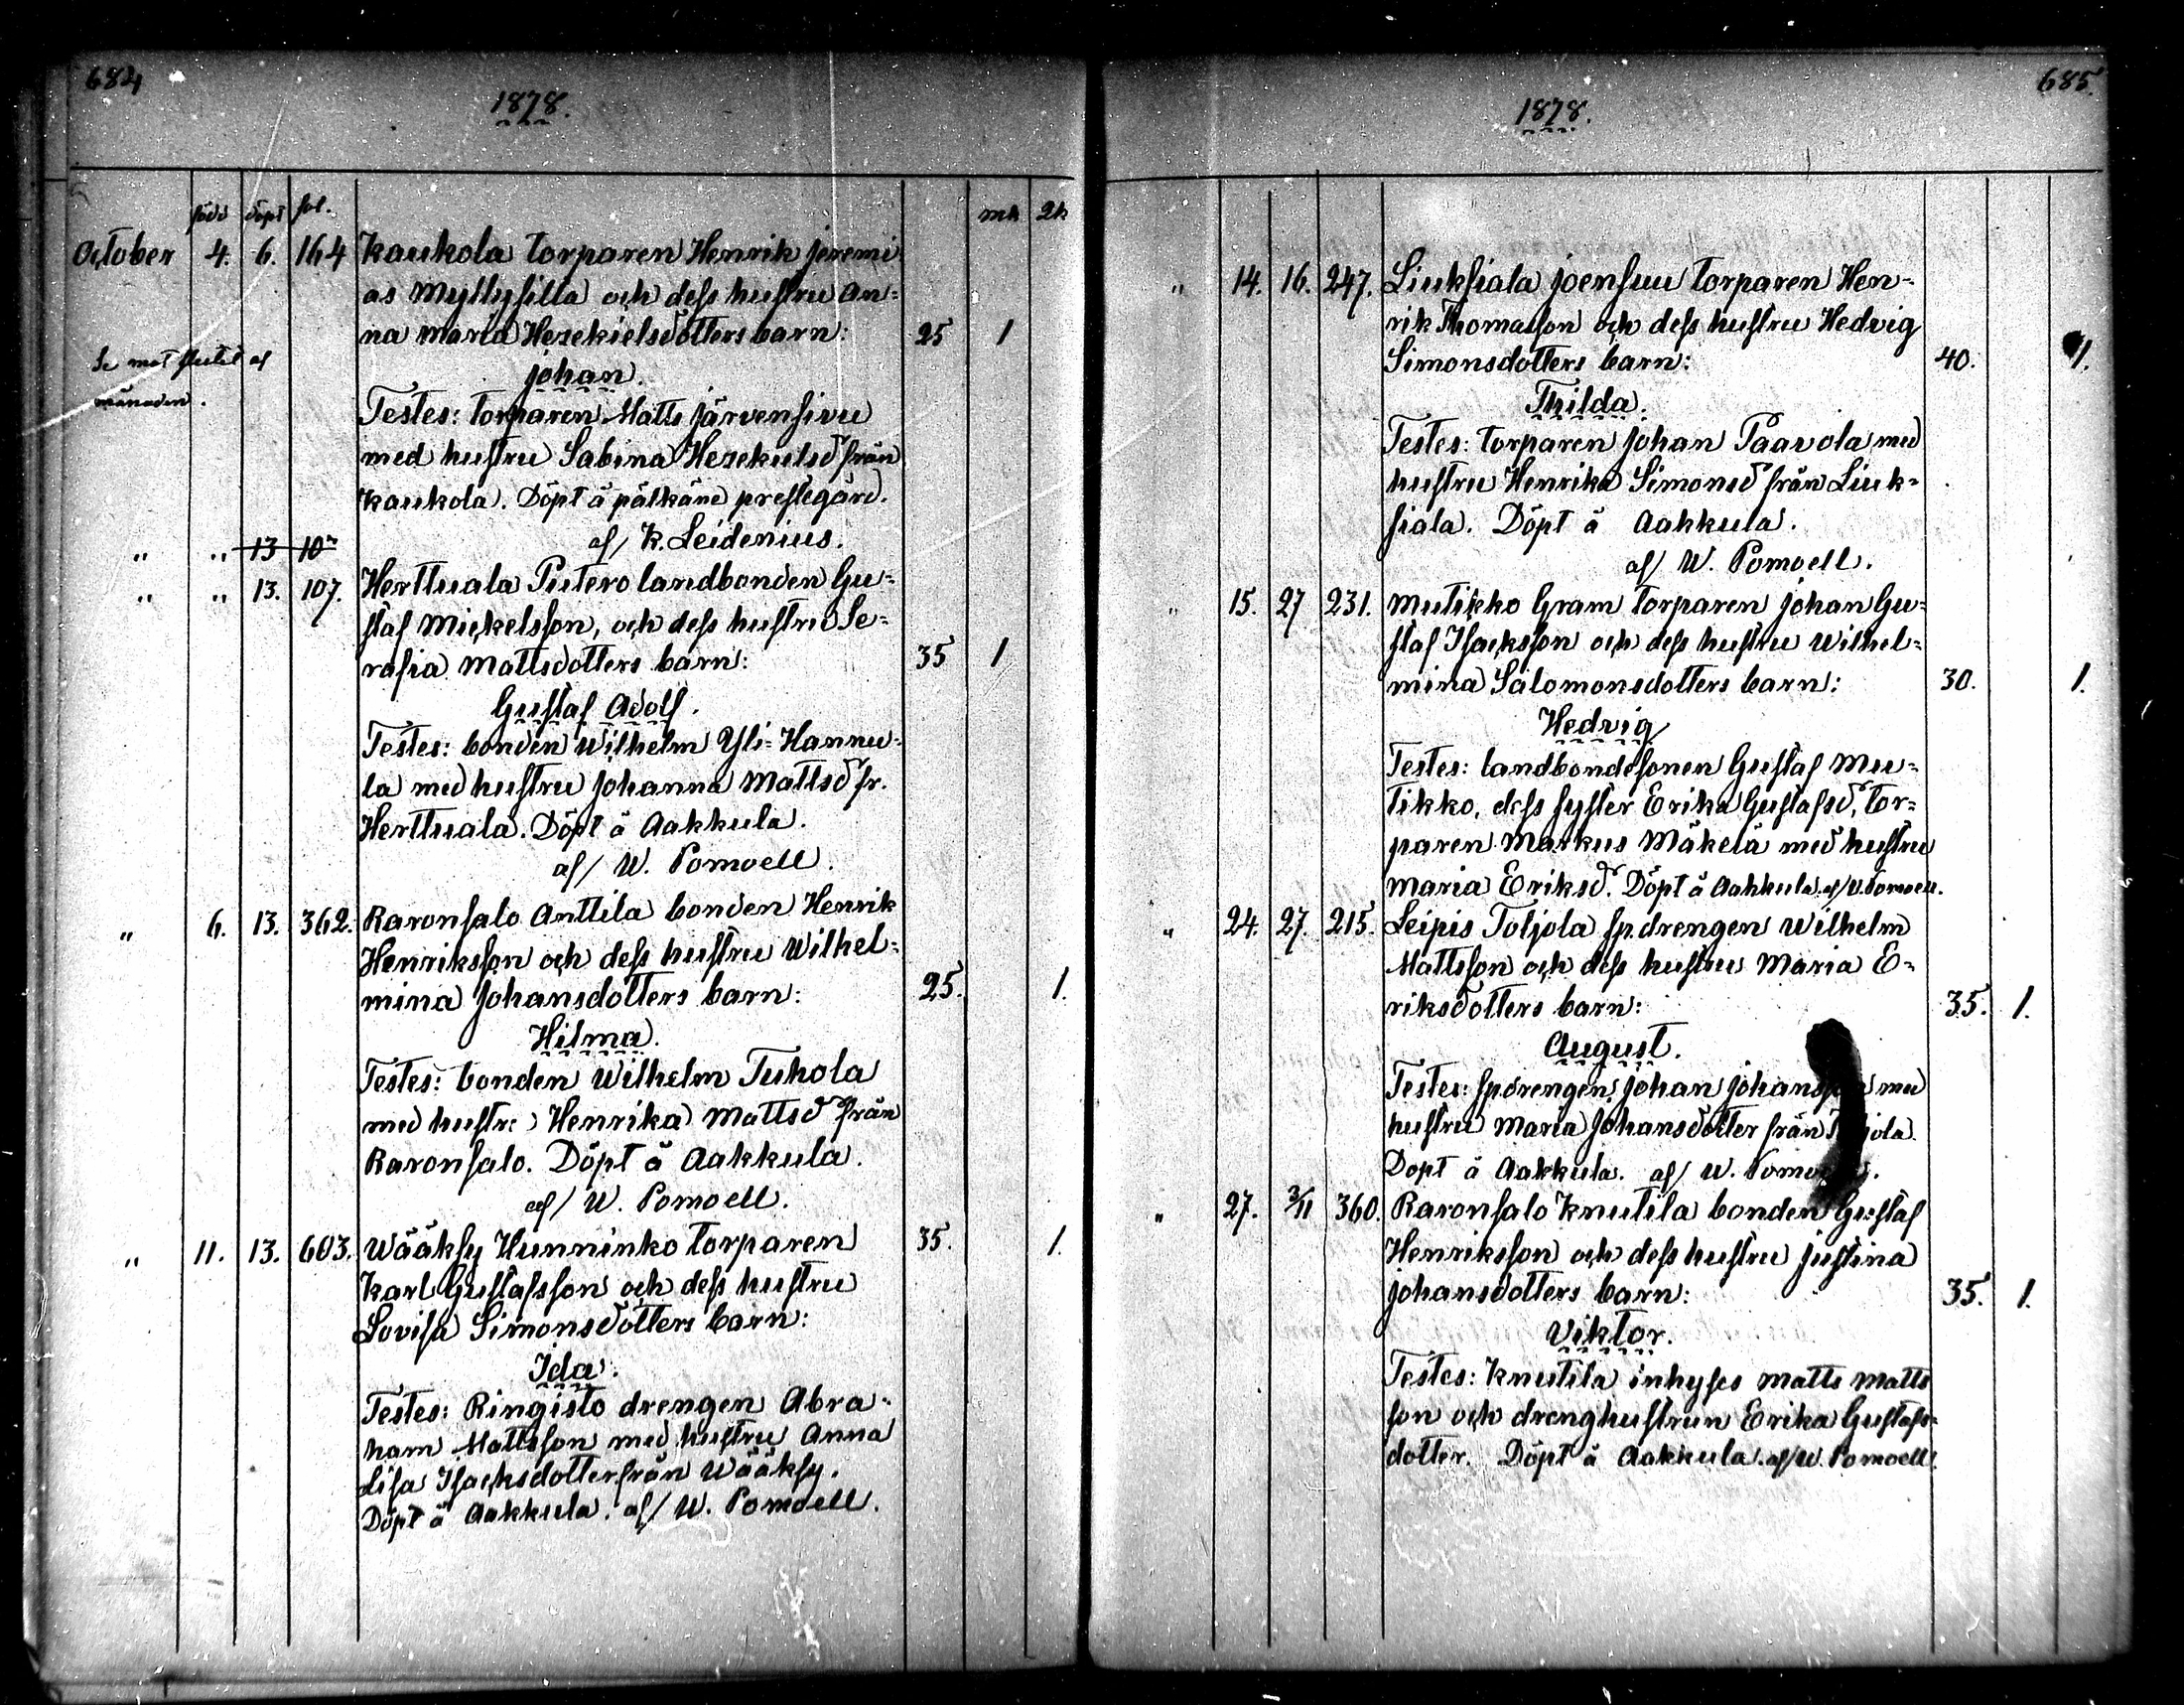 684
1878.
född döpt fol. mk qk
October 4. 6. 164 Kaukola torparen Henrik Jeremi
as Myllysilta och dess hustru An=
na Maria Hezekielsdotters barn: 25 1
Se mot slutet af
månaden.
Johan.
Testes: torparen Matts Järvensivu
med hustru Sabina Hezekielsd från
Kaukola. Döpt å pälkäne prestegård.
af/ K. Leidenius.
" " 13 10
" " 13. 107. Herttuala Putero landbonden Gu=
staf Mickelsson, och dess hustru Se=
rafia Mattsdotters barn: 35 1
Gustaf Adolf.
Testes: bonden Wilhelm Yli=Hannu=
la med hustru Johanna Mattsd fr.
Herttuala. Döpt å Aakkula.
af/ W. Pomoell.
" 6. 13. 362. Raronsalo Anttila bonden Henrik
Henriksson och dess hustru Wilhel=
mina Johansdotters barn: 25. 1.
Hilma.
Testes: bonden Wilhelm Tuhola
med hustru Henrika Mattsd från
Raronsalo. Döpt å Aakkula.
af/ W. Pomoell.
" 11. 13. 603. Wääksy Hunninko torparen 35. 1.
Karl Gustafsson och dess hustru
Lovisa Simonsdotters barn:
Ida.
Testes: Ringisto drengen Abra=
ham Mattsson med hustru Anna
Lisa Isacksdotter från Wääksy.
Döpt å Aakkula. af/ W. Pomoell.
685.
1878.
" 14. 16. 247. Liuksiala Joensuu torparen Hen=
rik Thomasson och dess hustru Hedvig
Simonsdotters barn: 40. 1.
Thilda.
Testes: torparen Johan Paavola med
hustru Henrika Simonsd från Liuk=
siala. Döpt å Aakkula.
af/ W. Pomoell.
" 15. 27 231. Mutikko Gram torparen Johan Gu=
staf Isacksson och dess hustru Wilhel=
mina Salomonsdotters barn: 30. 1.
Hedvig
Testes: landbondesonen Gustaf Mu=
tikko, dess syster Erika Gustafsd, tor=
paren Markus Mäkelä med hustru
Maria Eriksd. Döpt å Aakkula. af/ W. Pomoell.
" 24. 27. 215. Leipis Toljola sp.drengen Wilhelm
Mattsson och dess hustru Maria E=
riksdotters barn: 35. 1.
August.
Testes: spdrengen Johan Johansson med
hustru Maria Johansdotter från
Döpt å Aakkula. af/ W. Pomoell.
" 27. 3/11 360. Raronsalo Knutila bonden Gustaf
Henriksson och dess hustru Justina
Johansdotters barn: 35. 1.
Viktor.
Testes: Knutila inhyses Matts Matts
son och drenghustrun Erika Gustafs=
dotter. Döpt å Aakkula. af/ W. Pomoell.